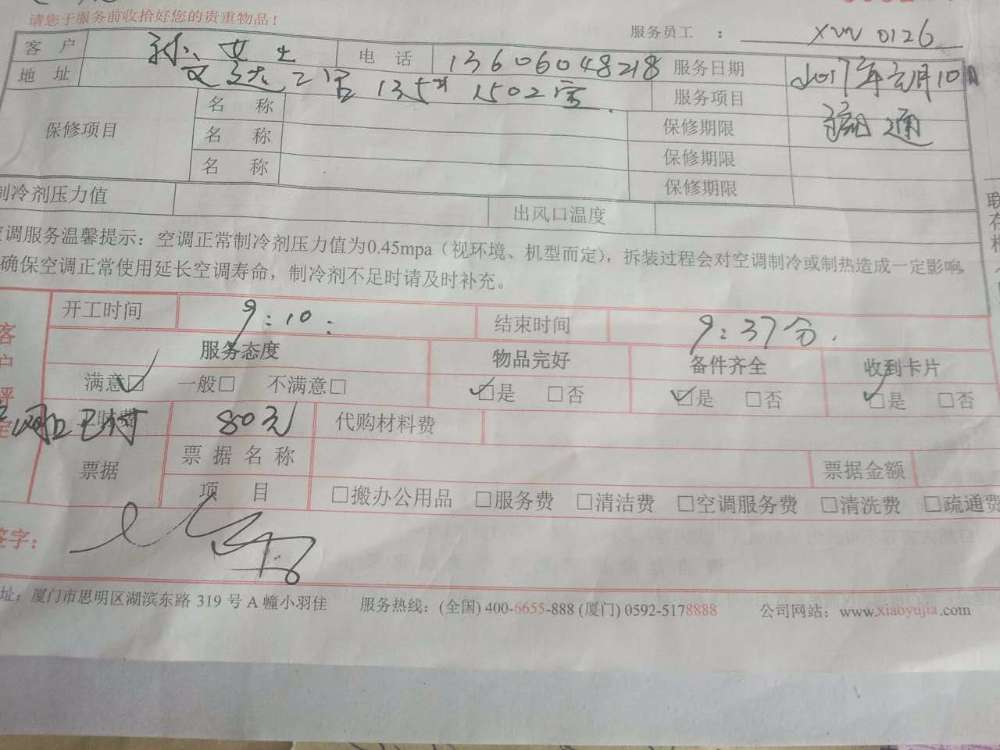 请您于服务前收拾好您的贵重物品！
服务员工 ： XW 0126
客 户 孙女士 电 话 13606048218 服务日期 2017年元月10
地 址 135# 1502室 服务项目 疏通
保修项目 名 称 保修期限
名 称 保修期限
名 称 保修期限
制冷剂压力值 出风口温度
空调服务温馨提示：空调正常制冷剂压力值为0.45mpa（视环境、机型而定），拆装过程会对空调制冷或制热造成一定影响
确保空调正常使用延长空调寿命，制冷剂不足时请及时补充。
开工时间 9:10: 结束时间 9:37分.
服务态度 物品完好 备件齐全 收到卡片
满意☑ 一般□ 不满意□ ☑是 □否 ☑是 □否 ☑是 □否
网上已付 80元 代购材料费
票据 票据名称 票据金额
项 目 □搬办公用品 □服务费 □清洁费 □空调服务费 □清洗费 □疏通费
签字：
址：厦门市思明区湖滨东路 319 号 A 幢小羽佳 服务热线：(全国) 400-6655-888 (厦门) 0592-5178888 公司网站：www.xiaoyujia.com